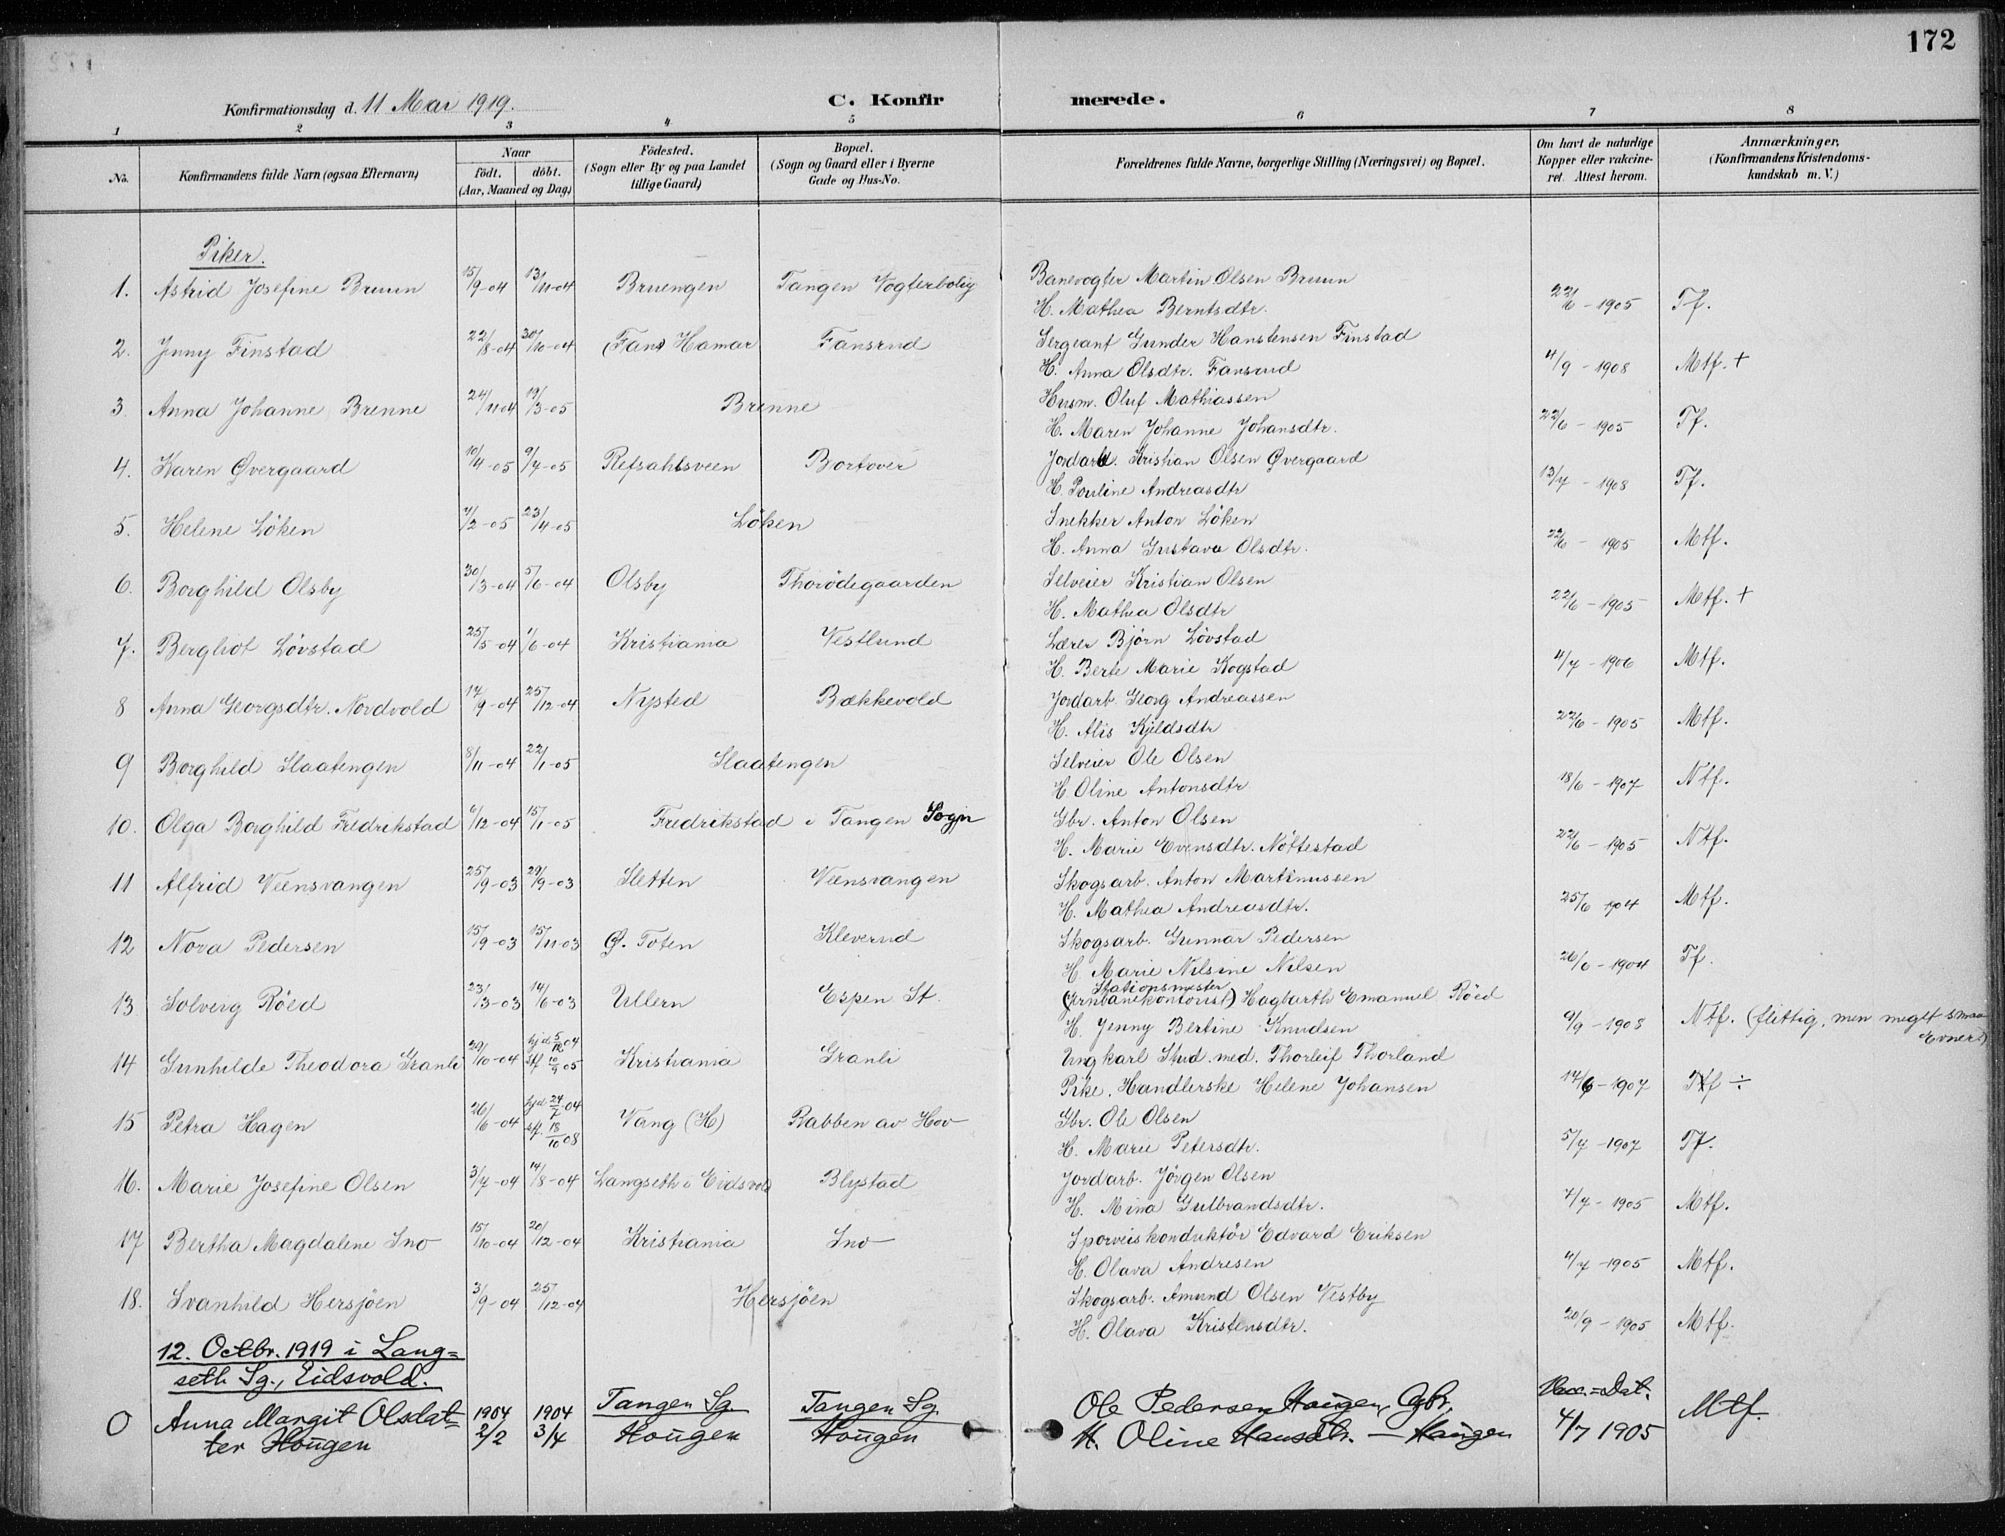 172
Konfirmationsdag d. 11 Mai 1919.
C. Konfirmerede.
1 2 3 4 5 6 7 8
No.
Konfirmandens fulde Navn (ogsaa Efternavn)
Naar
födt. döbt.
(Aar, Maaned og Dag)
Födested.
(Sogn eller By og paa Landet
tillige Gaard)
Bopæl.
(Sogn og Gaard eller i Byerne
Gade og Hus-No.
Forældrenes fulde Navne, borgerlige Stilling (Næringsvei) og Bopæl.
Om havt de naturlige
Kopper eller vakcine-
ret. Attest herom.
Anmærkninger,
(Konfirmandens Kristendoms-
kundskab m. V.)
Piker.
1. Astrid Josefine Bruun 15/9-04 13/11-04 Bruengen Tangen Vogterbolig Banevogter Martin Olsen Bruun
H. Mathea Berntsdtr. 22/6 - 1905 Tf.
2. Jenny Finstad 22/8-04 30/10-04 (Fans Hamar Fansrud Sergeant Gunder Hanstensen Finstad
H. Anna Olsdtr. Fansrud 4/9 - 1908 Mtf. +
3. Anna Johanne Brenne 24/11-04 19/3-05 Brenne Husm. Oluf Mathiassen
H. Maren Johanne Johansdtr. 22/6 - 1905 Tf.
4. Karen Øvergaard 10/4-05 9/7-05 Refsahlsveen Bortover Jordarb. Kristian Olsen Øvergaard
H. Pouline Andreasdtr 13/7 - 1908 Tf.
5. Helene Löken 4/2-05 23/4-05 Löken Snekker Anton Löken
H. Anna Gustava Olsdtr. 22/6 - 1905 Mtf.
6. Borghild Olsby 30/3-04 5/6-04 Olsby Thorödegaarden Selveier Kristian Olsen
H. Mathea Olsdtr 22/6 - 1905 Mtf. +
7. Bergliot Lövstad 25/5-04 1/6-04 Kristiania Vestlund Lærer Björn Lövstad
H. Berte Marie Kogstad 4/7 - 1906 Mtf.
8 Anna Georgsdtr. Nordvold 14/9-04 25/12-04 Nysted Bækkevold Jordarb Georg Andreassen
H. Alis Kjeldsdtr 22/6 - 1905 Mtf.
9 Borghild Slaatengen 8/11-04 22/1-05 Slaatengen Selveier Ole Olsen
H Oline Antonsdtr 18/6 - 1907 Ntf.
10. Olga Borghild Fredrikstad 6/12-04 15/1-05 Fredrikstad i Tangen Sogn Gbr. Anton Olsen
H. Marie Evensdtr. Nöttestad 22/6 - 1905 Ntf.
11 Alfrid Veensvangen 25/9-03 29/9-03 Sletten Veensvangen Skogsarb. Anton Martinussen
H. Mathea Andreasdtr. 25/6 1904 Mtf.
12 Nora Pedersen 15/9-03 15/11-03 Ø. Toten Kleverud Skogsarb. Gunnar Pedersen
H. Marie Nilsine Nilsen 26/6 - 1904 Tf.
13 Solveig Röed 23/3-03 14/6-03 Ullern Espen St. Stationsmester
(Jernbanekontorist) Hagbarth Emanuel Röed
H. Jenny Bertine Knudsen 9/9 - 1908 Ntf. (flittig, men meget smaa
Evner)
14 Gunhilde Theodora Granli 29/10-04 hjd 5/12 04
stf 10/9 05 Kristiania Granli Ungkarl Stud. med. Thorleif Thorland
Pike, Handlerske Helene Johansen 14/6 - 1907 Ttf ÷
15 Petra Hagen 26/6-04 hjd 24/7 04
stf. 18/10 08 Vang (H) Rabben av Hov Gbr. Ole Olsen
H. Marie Petersdtr. 5/7 - 1907 Tf.
16. Marie Josefine Olsen 3/7-04 14/8-04 Langseth i Eidsvold Blystad Jordarb. Jörgen Olsen
H. Mina Gulbrandsdtr. 4/7 - 1905 Mtf.
17 Bertha Magdalene Sno 15/10-04 20/12-04 Kristiania Sno Sporveiskonduktör Edvard Eriksen
H. Olava Andresen 4/7 - 1905 Mtf.
18. Svanhild Hersjöen 3/9-04 25/12-04 Hersjöen Skogsarb. Amund Olsen Vestby
H. Olava Kristensdtr. 20/9 - 1905 Mtf.
12. Octbr. 1919 i Lang=
seth Sg., Eidsvold.
O Anna Margit Olsdat= 1904 1904 Tangen Sg. Tangen Sg. Ole Pedersen Haugen, Gbr. Vacc.=Dat. Mtf.
ter Hougen 2/2 3/4 Hougen Hougen H. Oline Hansdtr. — Haugen 4/7 1905